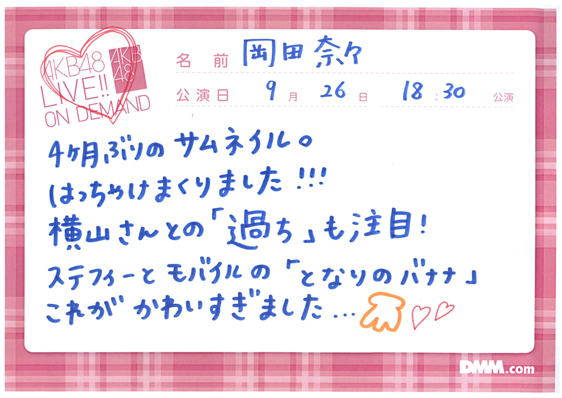 AKB48
LIVE!!
ON DEMAND
AKB
48
名前 岡田奈々
公演日 9月 26日 18:30 公演
4ヶ月ぶりのサムネイル。
はっちゃけまくりました!!!
横山さんとの「過ち」も注目!
ステフィーとモバイルの「となりのバナナ」
これが かわいすぎました...
DMM.com